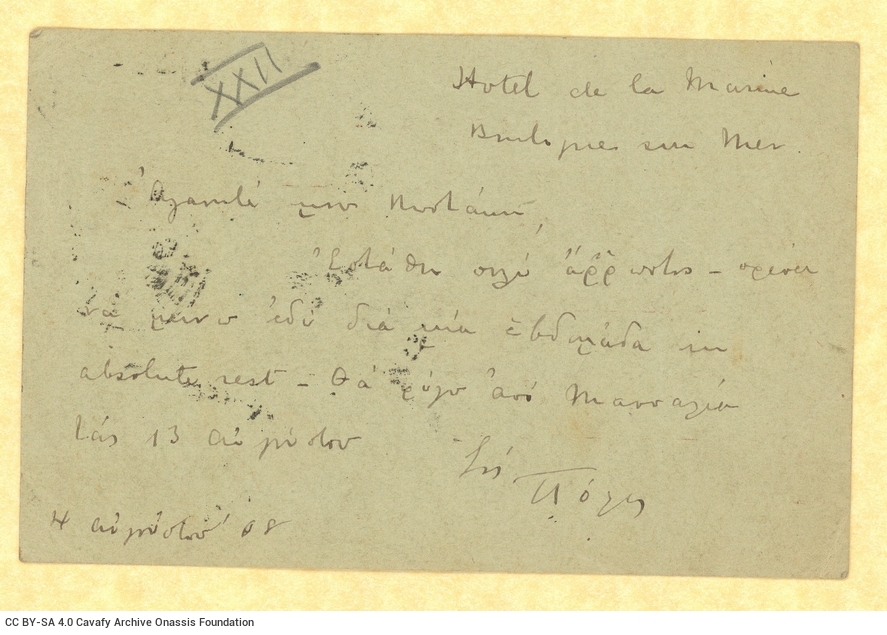 XXII
Hotel de la Marine
Boulogne sur Mer.
Ἀγαπητέ μου Κωστάκη,
Ἐστάθην πολύ ἄῤῥωστος – πρέπει
νά μείνω ἐδῶ διά μία ἑβδομάδα in
absolute rest – Θά φύγω ἀπό Μασσαλία
τάς 13 Αὐγούστου
Σός
Πόλης
4 Αὐγούστου 08
CC BY-SA 4.0 Cavafy Archive Onassis Foundation